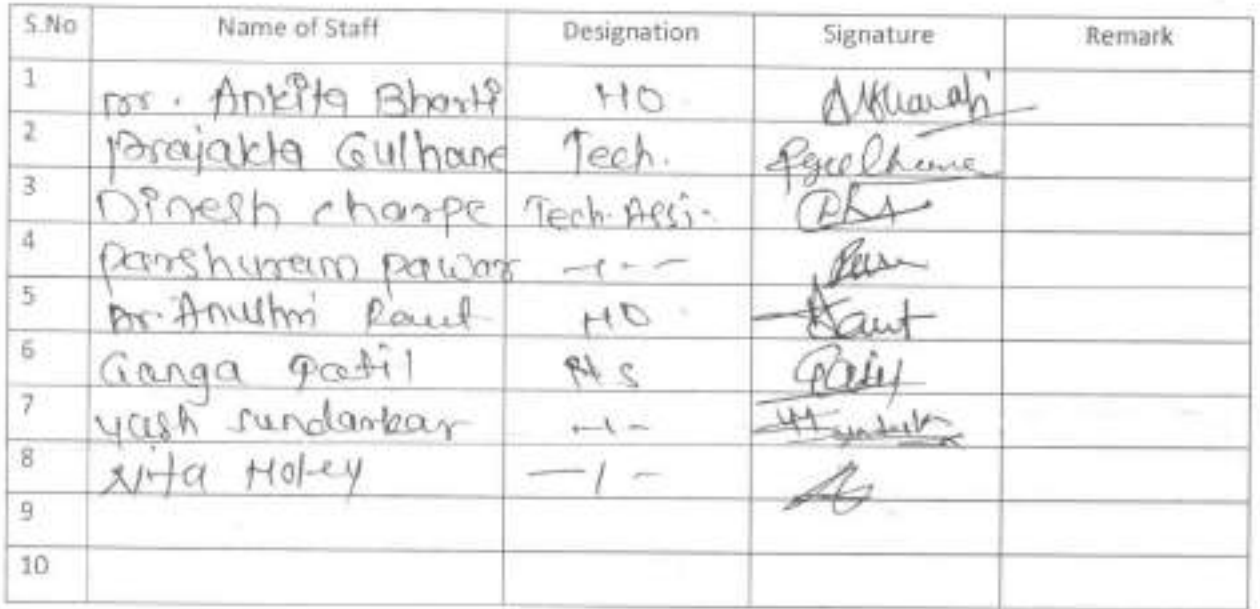 S.No Name of Staff Designation Signature Remark
1 Dr. Ankita Bharti MO
2 Prajakta Gulhane Tech. Pgulhane
3 Dinesh charpe Tech. Assi.
4 Parshuram pawar -ı--
5 Dr. Anushri Raut MO Raut
6 Ganga Patil Patil
7 yash sundarkar -ı-
8 Nita Holey -ı-
9
10